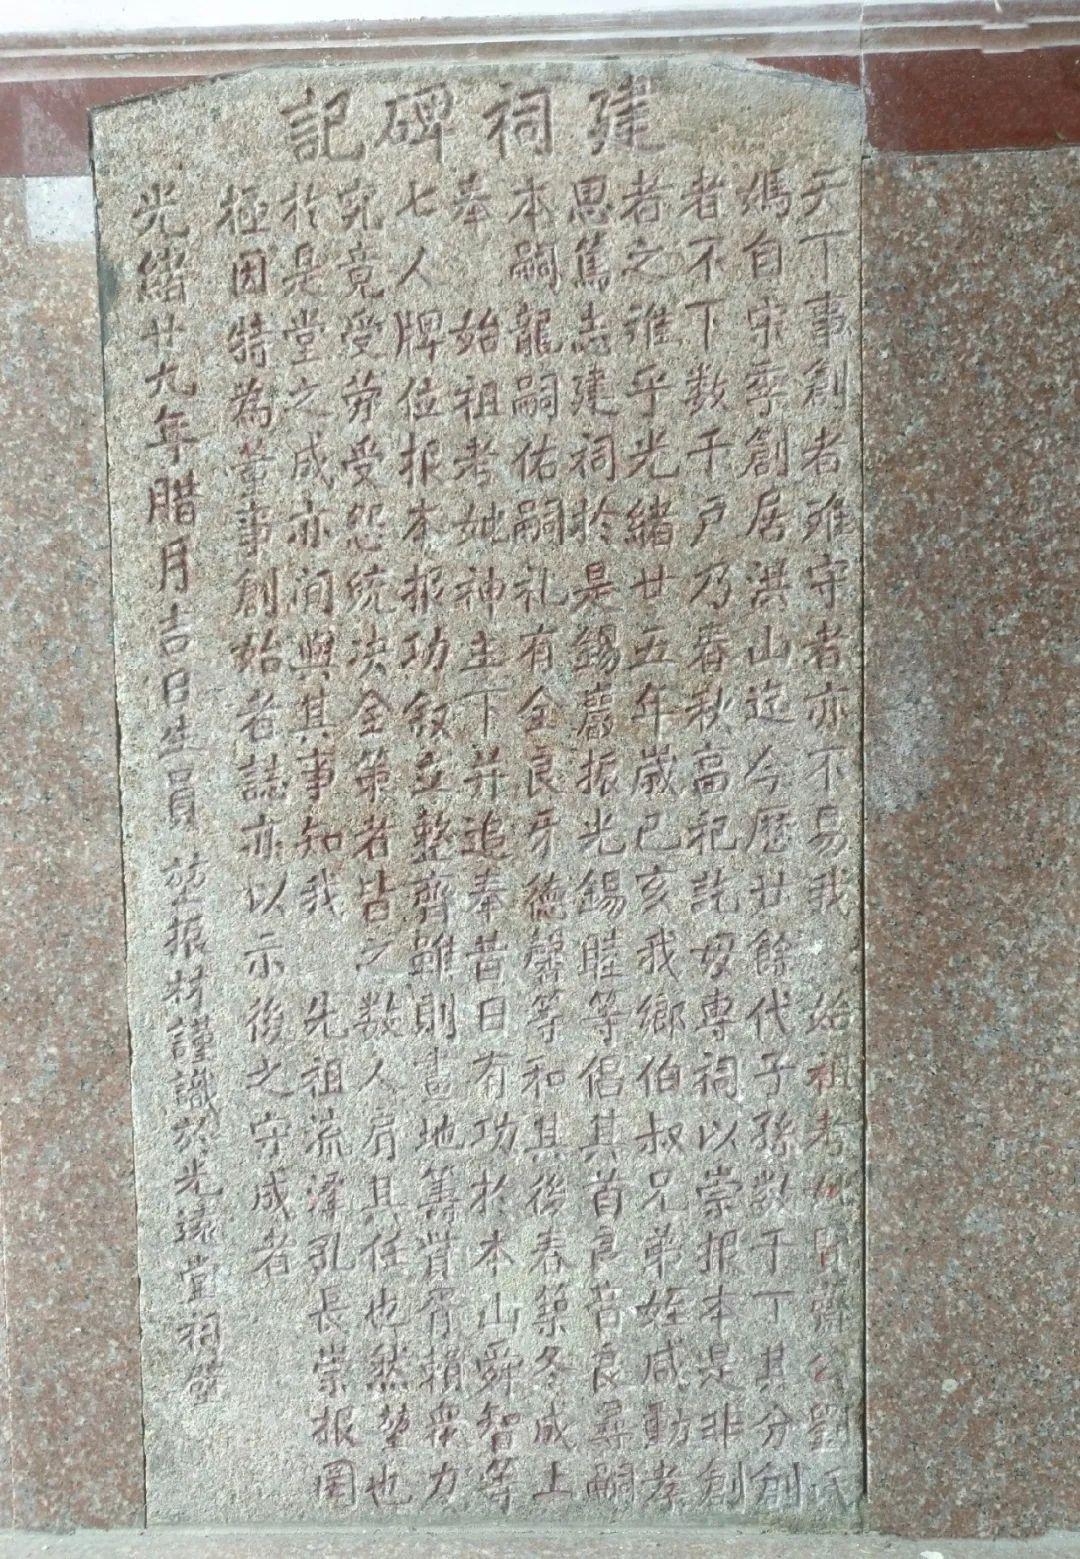 建祠碑記
天下事創者難守者亦不易我 始祖考妣 齋公劉氏
媽自宋季創居洪山迄今歷廿餘代子孫數千丁其分創
者不下數千戶乃春秋高祀詎毋專祠以崇报本是非創
者之难乎光緒廿五年歲己亥我鄉伯叔兄弟姪咸動孝
思篤志建祠於是錫慶振光錫睦等倡其首良音良尋嗣
本嗣龍嗣佑嗣礼有全良牙德馨等和其後春築冬成上
奉 始祖考妣神主下并追奉昔日有功於本山舜智等
七人牌位报本报功敘立整齊雖則畫地筹貲胥賴衆力
究竟受劳受怨统决全策者皆之数人肩其任也然 也
於是堂之成亦间與其事知我 先祖流澤孔長崇报罔
極因特為董事創始者誌亦以示後之守成者
光緒廿九年腊月吉日生員 振材謹識於光遠堂祠壁